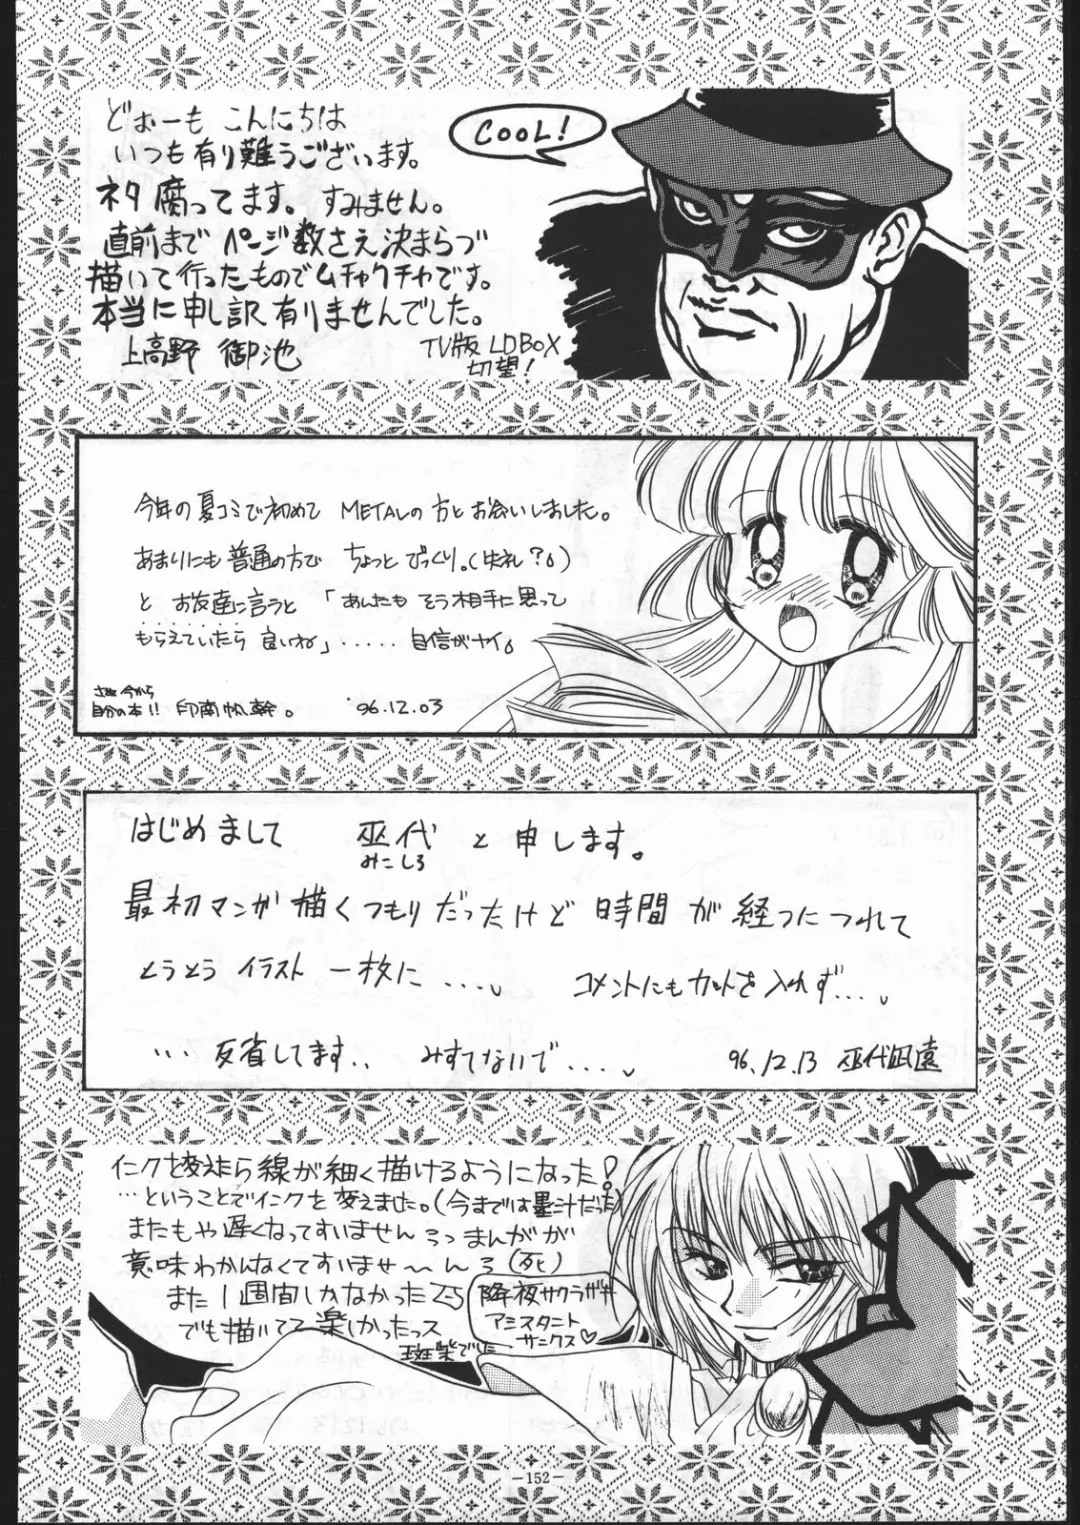 どぉーも こんにちは
いつも有り難うございます。
ネタ腐ってます。すみません。
直前まで ページ数さえ決まらづ
描いて行ったものでムチャクチャです。
本当に申し訳有りませんでした。
上高野 御池
TV版 LDBOX
切望!
COOL!
今年の夏コミで初めて METALの方とお会いしました。
あまりにも普通の方で ちょっとびっくり。(失礼?。)
と お友達に言うと 「あんたも そう相手に思って
もらえていたら 良いね」‥‥‥自信がナイ。
さぁ 今から
自分の本!! 印南帆幹。 '96.12.03
はじめまして 巫代 と申します。
みこしろ
最初マンガ描くつもりだったけど 時間が経つにつれて
とうとう イラスト 一枚に‥‥、
コメントにもカットを入れず‥‥、
‥‥反省してます‥ みすてないで‥‥、
96.12.13 巫代凪遠
インクを変えたら線が細く描けるようになった!
…ということでインクを変えました。(今までは墨汁だった)
またもや遅くなってすいませんろっ まんがが
意味わかんなくてすいませ〜んろ(死)
また1週間しかなかった
でも描いてて楽しかったっス
斑 でした
降夜サクラザキ
アシスタント
サンクス♡
-152-